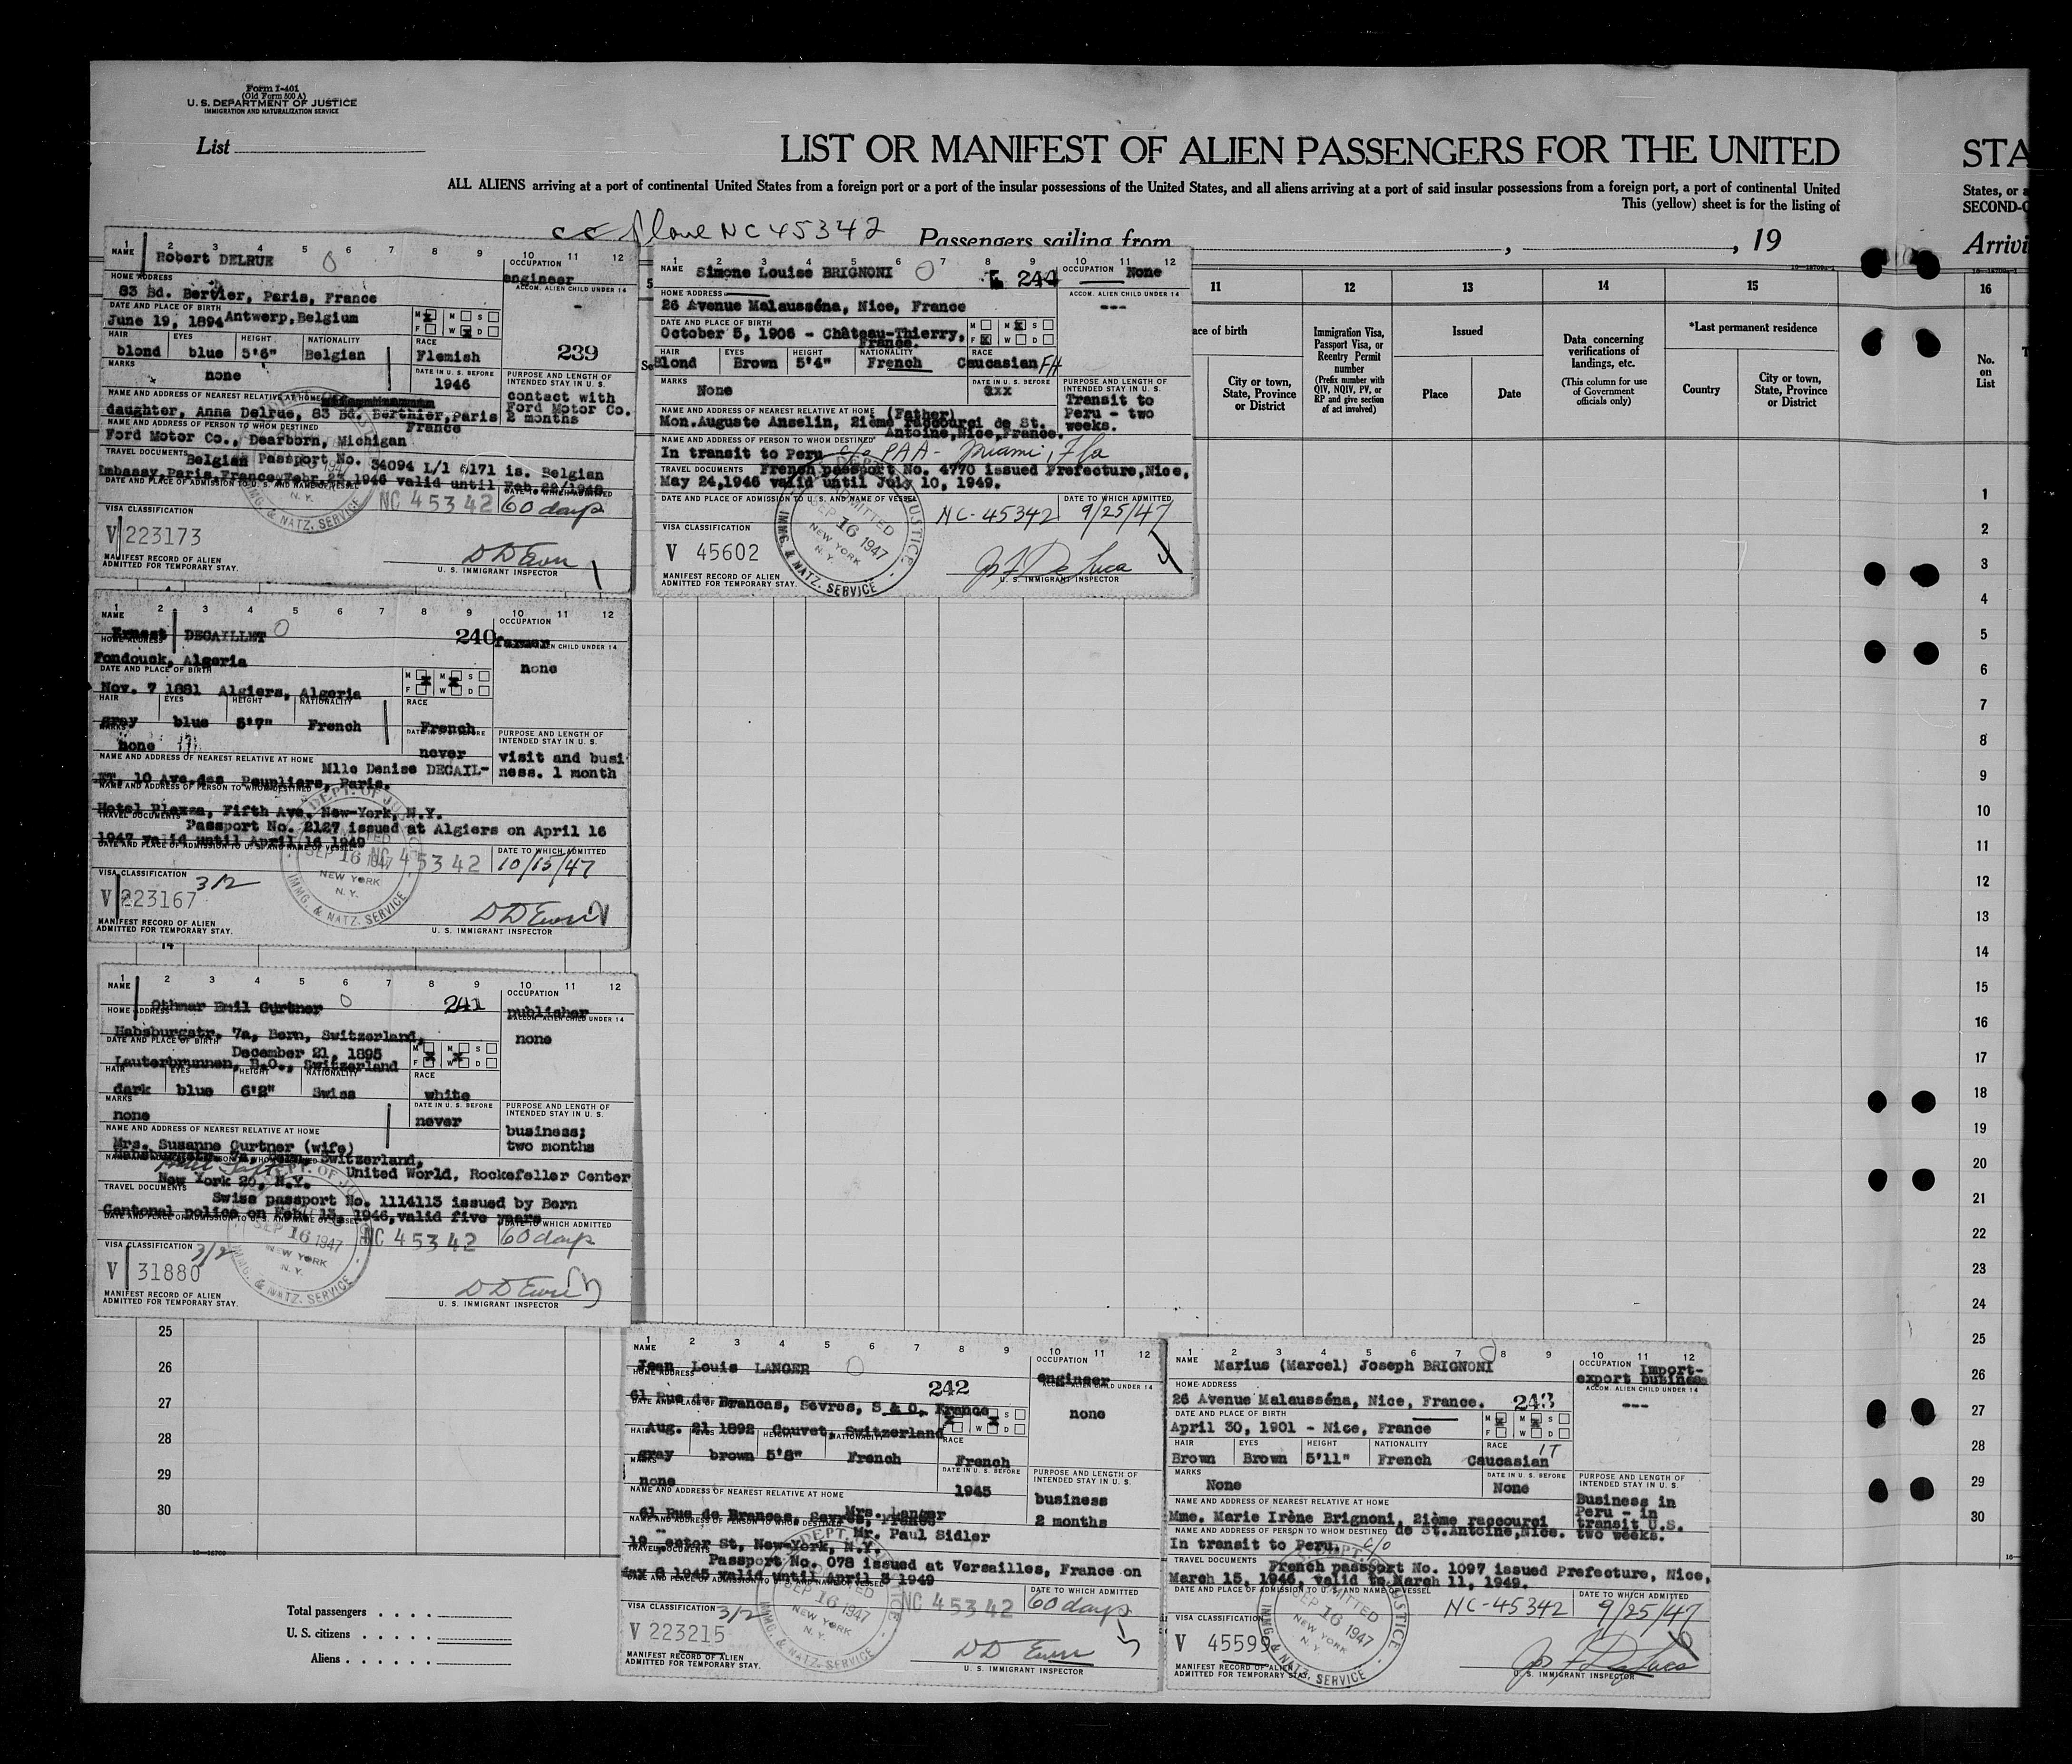 Form I-401
(Old Form 500 A)
U. S. DEPARTMENT OF JUSTICE
IMMIGRATION AND NATURALIZATION SERVICE
List
LIST OR MANIFEST OF ALIEN PASSENGERS FOR THE UNITED
STA
ALL ALIENS arriving at a port of continental United States from a foreign port or a port of the insular possessions of the United States, and all aliens arriving at a port of said insular possessions from a foreign port, a port of continental United
States, or a
This (yellow) sheet is for the listing of
SECOND-C
Plane NC 45342
Passengers sailing from , , 19
Arrivi
1 2 3 4 5 6 7 8 9 10 11 12
NAME Robert DELRUE
OCCUPATION engineer
HOME ADDRESS
83 Bd. Bertier, Paris, France
ACCOM. ALIEN CHILD UNDER 14
-
DATE AND PLACE OF BIRTH
June 19, 1894 Antwerp, Belgium
M X M S
F W X D
HAIR EYES HEIGHT NATIONALITY RACE
blond blue 5'6" Belgian Flemish
239
MARKS
none
DATE IN U.S. BEFORE
1946
PURPOSE AND LENGTH OF INTENDED STAY IN U. S.
contact with
Ford Motor Co.
2 months
NAME AND ADDRESS OF NEAREST RELATIVE AT HOME
daughter, Anna Delrue, 83 Bd. Berthier, Paris
France
NAME AND ADDRESS OF PERSON TO WHOM DESTINED
Ford Motor Co., Dearborn, Michigan
TRAVEL DOCUMENTS
Belgian Passport No. 34094 L/1 6171 is. Belgian
Embassy, Paris, France, Febr. 23, 1946 valid until Feb. 22/1948
DATE AND PLACE OF ADMISSION TO U. S. AND NAME OF VESSEL
NC 45342
DATE TO WHICH ADMITTED
60 days
VISA CLASSIFICATION
V 223173
MANIFEST RECORD OF ALIEN
ADMITTED FOR TEMPORARY STAY.
U. S. IMMIGRANT INSPECTOR
1 2 3 4 5 6 7 8 9 10 11 12
NAME Simone Louise BRIGNONI
244
OCCUPATION None
HOME ADDRESS
26 Avenue Malausséna, Nice, France
ACCOM. ALIEN CHILD UNDER 14
---
DATE AND PLACE OF BIRTH
October 5, 1906 - Château-Thierry,
France.
M M X S
F X W D
HAIR EYES HEIGHT NATIONALITY RACE
Blond Brown 5'4" French Caucasian FH
MARKS
None
DATE IN U.S. BEFORE
xxx
PURPOSE AND LENGTH OF INTENDED STAY IN U. S.
Transit to
Peru - two
weeks.
NAME AND ADDRESS OF NEAREST RELATIVE AT HOME
(Father)
Mon. Auguste Anselin, 2ième raccourci de St.
Antoine, Nice, France.
NAME AND ADDRESS OF PERSON TO WHOM DESTINED
In transit to Peru c/o PAA - Miami, Fla
TRAVEL DOCUMENTS
French passport No. 4770 issued Prefecture, Nice,
May 24, 1946 valid until July 10, 1949.
DATE AND PLACE OF ADMISSION TO U. S. AND NAME OF VESSEL
NC-45342
DATE TO WHICH ADMITTED
9/25/47
ADMITTED
SEP 16 1947
NEW YORK
N. Y.
IMMG. & NATZ. SERVICE
VISA CLASSIFICATION
V 45602
MANIFEST RECORD OF ALIEN
ADMITTED FOR TEMPORARY STAY.
Jos F. De Luca
U. S. IMMIGRANT INSPECTOR
11 12 13 14 15 16
ace of birth
City or town, State, Province or District
Immigration Visa, Passport Visa, or Reentry Permit number
(Prefix number with QIV, NQIV, PV, or RP and give section of act involved)
Issued
Place
Date
Data concerning verifications of landings, etc.
(This column for use of Government officials only)
*Last permanent residence
Country
City or town, State, Province or District
No. on List
1 2 3 4 5 6 7 8 9 10 11 12
NAME Ernest DECAILLET
240
OCCUPATION farmer
HOME ADDRESS
Fondouck, Algeria
CHILD UNDER 14
none
DATE AND PLACE OF BIRTH
Nov. 7 1881 Algiers, Algeria
M X M X S
F W D
HAIR EYES HEIGHT NATIONALITY RACE
gray blue 5'7" French French
MARKS
none
DATE IN U.S. BEFORE
never
PURPOSE AND LENGTH OF INTENDED STAY IN U. S.
visit and busi
ness. 1 month
NAME AND ADDRESS OF NEAREST RELATIVE AT HOME
Mlle Denise DECAIL-
ET, 10 Ave. des Peupliers, Paris.
NAME AND ADDRESS OF PERSON TO WHOM DESTINED
Hotel Plazza, Fifth Ave. New-York, N.Y.
TRAVEL DOCUMENTS
Passport No. 2127 issued at Algiers on April 16
1947 valid until April 16 1949
DATE AND PLACE OF ADMISSION TO U. S. AND NAME OF VESSEL
SEP 16 1947
NC 45342
DATE TO WHICH ADMITTED
10/15/47
NEW YORK
N. Y.
IMMG. & NATZ. SERVICE
VISA CLASSIFICATION 3/2
V 223167
MANIFEST RECORD OF ALIEN
ADMITTED FOR TEMPORARY STAY.
U. S. IMMIGRANT INSPECTOR
1 2 3 4 5 6 7 8 9 10 11 12
NAME Othmar Emil Gurtner
241
OCCUPATION publisher
HOME ADDRESS
Habsburgstr. 7a, Bern, Switzerland,
ACCOM. ALIEN CHILD UNDER 14
none
DATE AND PLACE OF BIRTH
December 21, 1895
Lauterbrunnen, B.O., Switzerland
M X M X S
F W D
HAIR EYES HEIGHT NATIONALITY RACE
dark blue 6'2" Swiss white
MARKS
none
DATE IN U.S. BEFORE
never
PURPOSE AND LENGTH OF INTENDED STAY IN U. S.
business;
two months
NAME AND ADDRESS OF NEAREST RELATIVE AT HOME
Mrs. Susanne Gurtner (wife)
Habsburgstr. 7a, Bern, Switzerland,
United World, Rockefeller Center
New York 20, N.Y.
TRAVEL DOCUMENTS
Swiss passport No. 1114113 issued by Bern
Cantonal police on Feb. 13, 1946, valid five years
DATE AND PLACE OF ADMISSION TO U. S. AND NAME OF VESSEL
SEP 16 1947
NC 45342
DATE TO WHICH ADMITTED
60 days
NEW YORK
N. Y.
IMMG. & NATZ. SERVICE
VISA CLASSIFICATION 3/2
V 31880
MANIFEST RECORD OF ALIEN
ADMITTED FOR TEMPORARY STAY.
U. S. IMMIGRANT INSPECTOR
1 2 3 4 5 6 7 8 9 10 11 12
NAME Jean Louis LANGER
242
OCCUPATION engineer
HOME ADDRESS
61 Rue de Brancas, Sèvres, S & O, France
ACCOM. ALIEN CHILD UNDER 14
none
DATE AND PLACE OF BIRTH
Aug. 21 1892 Couvet, Switzerland
HAIR EYES HEIGHT NATIONALITY RACE
gray brown 5'8" French French
MARKS
none
DATE IN U.S. BEFORE
1945
PURPOSE AND LENGTH OF INTENDED STAY IN U. S.
business
2 months
NAME AND ADDRESS OF NEAREST RELATIVE AT HOME
Mrs. Langer
61 Rue de Brancas, Sevres, France
NAME AND ADDRESS OF PERSON TO WHOM DESTINED
Mr. Paul Sidler
St, New-York, N.Y.
TRAVEL DOCUMENTS
Passport No. 078 issued at Versailles, France on
May 8 1945 valid until April 3 1949
DATE AND PLACE OF ADMISSION TO U. S. AND NAME OF VESSEL
SEP 16 1947
NC 45342
DATE TO WHICH ADMITTED
60 days
NEW YORK
N. Y.
VISA CLASSIFICATION 3/2
V 223215
MANIFEST RECORD OF ALIEN
ADMITTED FOR TEMPORARY STAY.
U. S. IMMIGRANT INSPECTOR
1 2 3 4 5 6 7 8 9 10 11 12
NAME Marius (Marcel) Joseph BRIGNONI
OCCUPATION Import-
export business
HOME ADDRESS
26 Avenue Malausséna, Nice, France.
243
ACCOM. ALIEN CHILD UNDER 14
---
DATE AND PLACE OF BIRTH
April 30, 1901 - Nice, France
M X M X S
F W D
HAIR EYES HEIGHT NATIONALITY RACE
Brown Brown 5'11" French Caucasian IT
MARKS
None
DATE IN U.S. BEFORE
None
PURPOSE AND LENGTH OF INTENDED STAY IN U. S.
Business in
Peru - in
transit U.S.
two weeks.
NAME AND ADDRESS OF NEAREST RELATIVE AT HOME
Mme. Marie Irène Brignoni, 2ième raccourci
de St. Antoine, Nice.
NAME AND ADDRESS OF PERSON TO WHOM DESTINED
In transit to Peru. c/o
TRAVEL DOCUMENTS
French passport No. 1097 issued Prefecture, Nice,
March 15, 1946, valid to March 11, 1949.
DATE AND PLACE OF ADMISSION TO U. S. AND NAME OF VESSEL
NC-45342
DATE TO WHICH ADMITTED
9/25/47
ADMITTED
SEP 16 1947
NEW YORK
N. Y.
VISA CLASSIFICATION
V 45599
MANIFEST RECORD OF ALIEN
ADMITTED FOR TEMPORARY STAY.
Jos F. De Luca
U. S. IMMIGRANT INSPECTOR
14
25
26
27
28
29
30
Total passengers . . . .
U. S. citizens . . . . .
Aliens . . . . . .
1
2
3
4
5
6
7
8
9
10
11
12
13
14
15
16
17
18
19
20
21
22
23
24
25
26
27
28
29
30